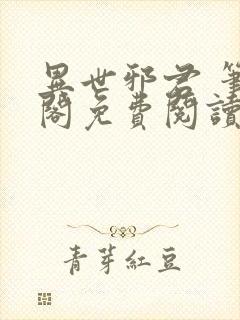 異世邪君 筆
閣免費閱讀
青芽紅豆